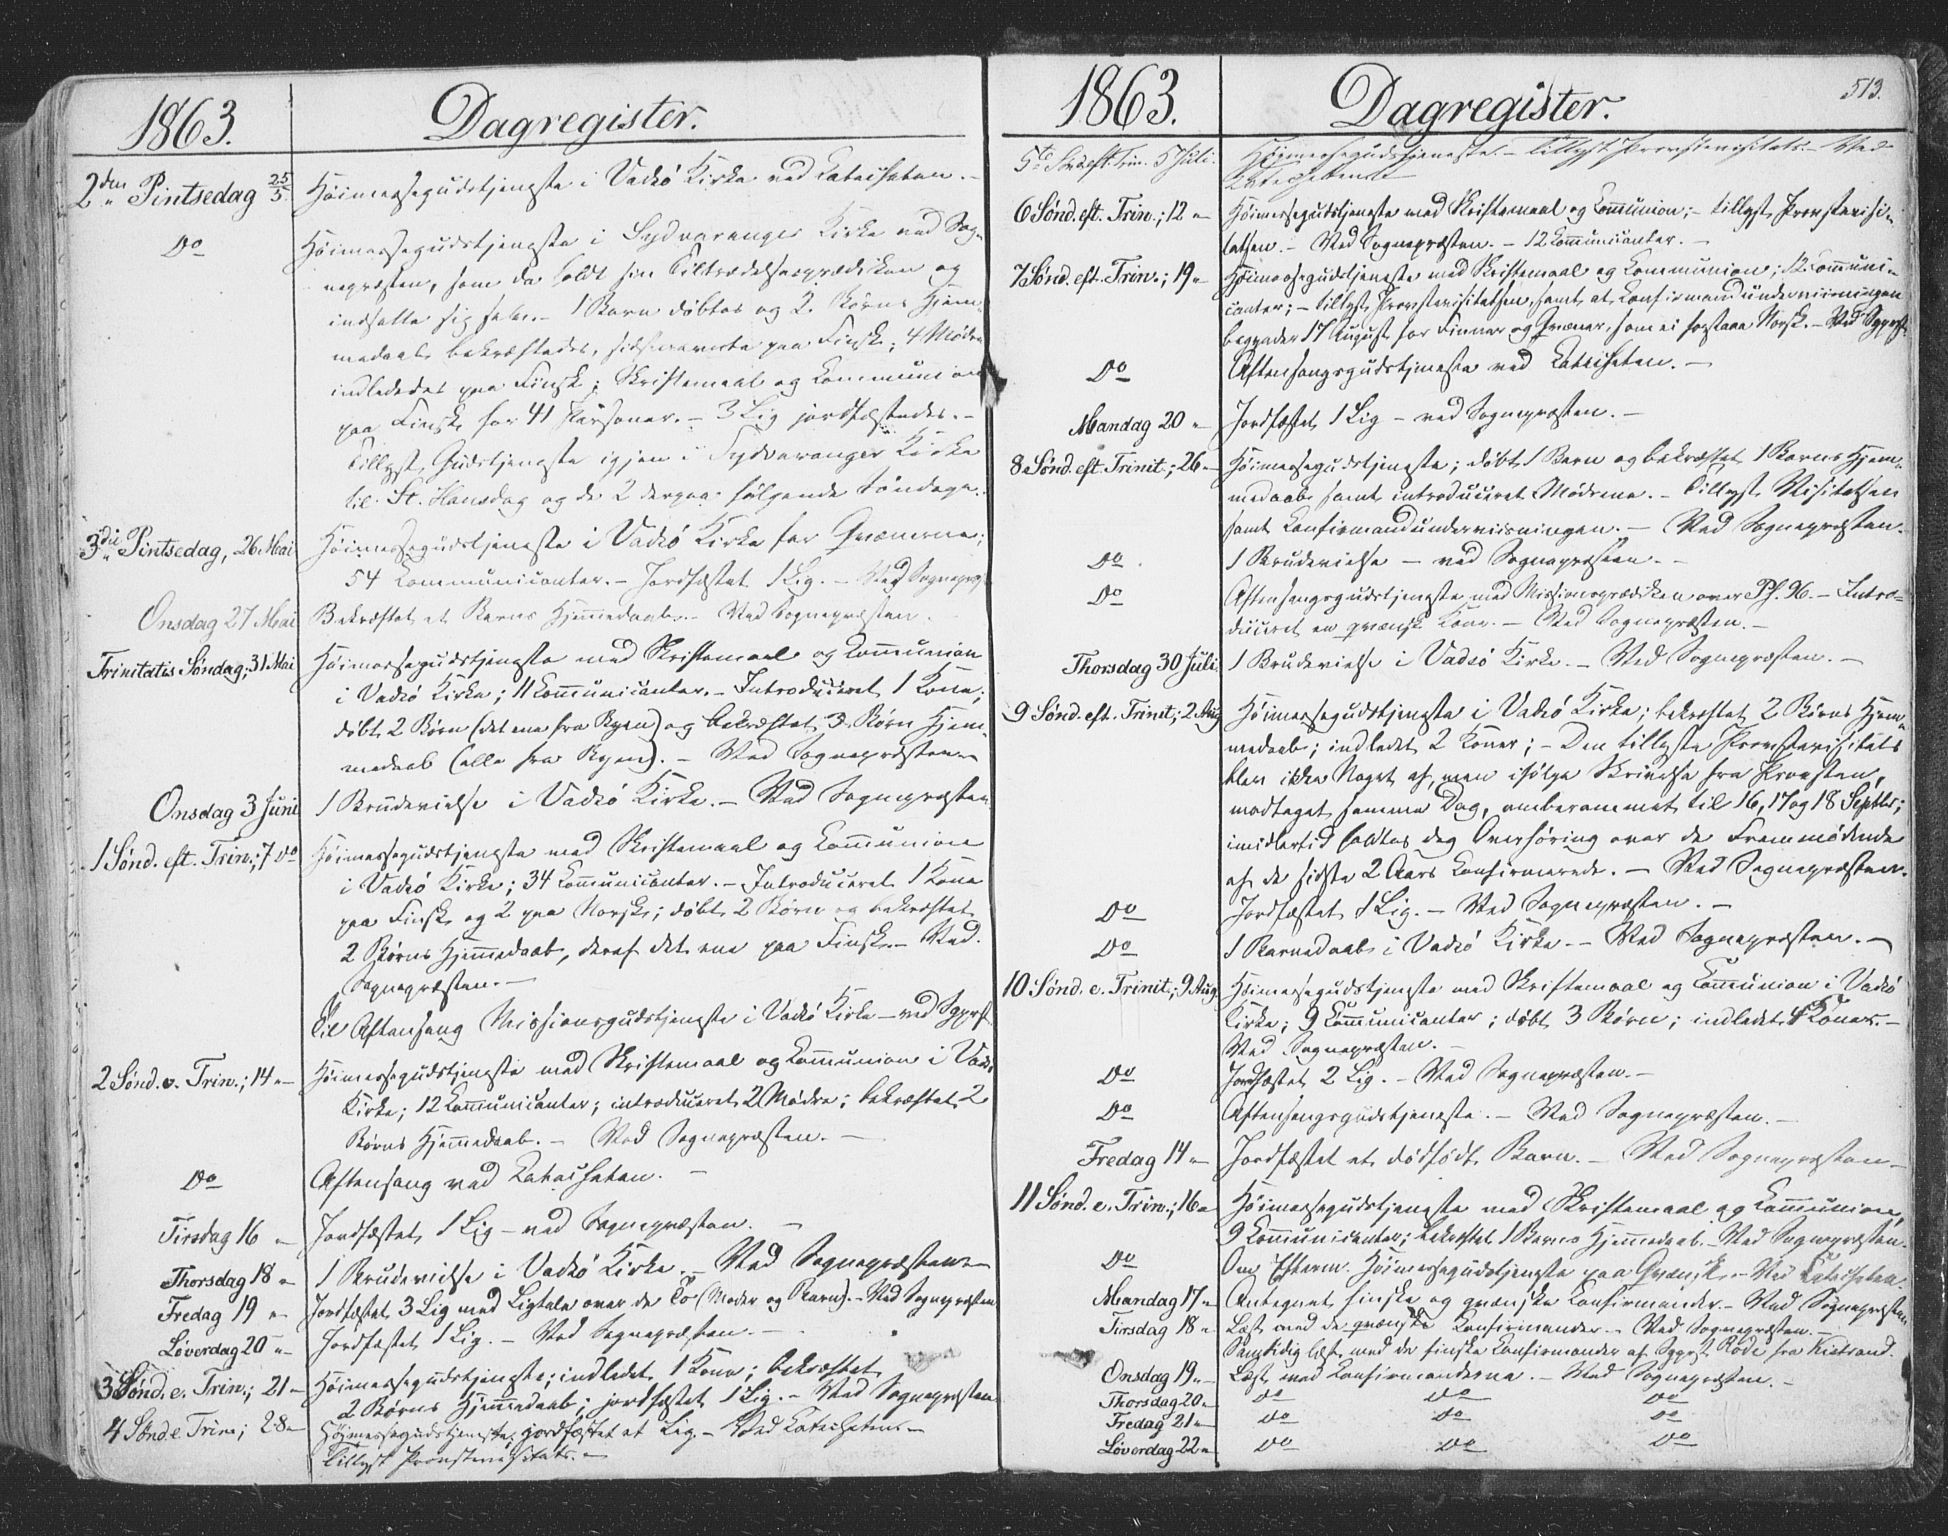 1863.
Dagregister.
2den Pintsedag 25/5
Høimessegudstjeneste i Vadsö Kirke ved Catecheten. -
Do
Høimessegudstjeneste i Sydvaranger Kirke ved Sog-
nepræsten, som da holdt sin Tiltrædelsesprædiken og
indsatte sig selv. - 1 Barn döbtes og 2 Börns Hjem-
medaab bekræftedes, sidstnævnte paa Finsk; 4 Mödre
indlededes paa Finsk; Skriftemaal og Communion
paa Finsk for 41 Personer. - 3 Lig jordfæstedes. -
Tillyst Gudstjeneste igjen i Sydvaranger Kirke
til St. Hansdag og de 2 derpaa fölgende Söndage.
3die Pintsedag, 26 Mai
Høimessegudstjeneste i Vadsö Kirke for Qvænerne;
54 Communicanter. - Jordfæstet 1 Lig. - Ved Sognepr.
Onsdag 27 Mai
Bekræftet et Barns Hjemmedaab. - Ved Sognepræsten.
Trinitatis Søndag, 31 Mai
Høimessegudstjeneste med Skriftemaal og Communion
i Vadsö Kirke; 11 Communicanter. - Introduceret 1 Kone;
döbt 2 Börn (det ene fra Kyen) og bekræftet 3 Börns Hjem-
medaab (alle fra Kyen). - Ved Sognepræsten
Onsdag 3 Juni
1 Brudevielse i Vadsö Kirke. - Ved Sognepræsten
1 Sønd. eft. Trin.; 7 Do
Høimessegudstjeneste med Skriftemaal og Communion
i Vadsö Kirke; 34 Communicanter. - Introduceret 1 Kone
paa Finsk og 2 paa Norsk; döbt 2 Börn og bekræftet
2 Börns Hjemmedaab, deraf det ene paa Finsk. - Ved
Sognepræsten. -
Til Aftensang Missionsgudstjeneste i Vadsö Kirke - ved Sgprst
2 Sønd. e. Trin.; 14 "
Høimessegudstjeneste med Skriftemaal og Communion i Vadsö
Kirke; 12 Communicanter; introduceret 2 Mödre; bekræftet 2
Börns Hjemmedaab. - Ved Sognepræsten. -
Do
Aftensang ved Catecheten. -
Tirsdag 16 "
Jordfæstet 1 Lig - ved Sognepræsten. -
Thorsdag 18 "
1 Brudevielse i Vadsö Kirke. - Ved Sognepræsten
Fredag 19 "
Jordfæstet 3 Lig med Ligtale over de To (Moder og Barn). - Ved Sognepræsten
Løverdag 20 "
Jordfæstet 1 Lig. - Ved Sognepræsten. -
3 Sønd. e. Trin.; 21 "
Høimessegudstjeneste; indledet 1 Kone; bekræftet
2 Börns Hjemmedaab; jordfæstet 1 Lig. - Ved Sognepræsten
4 Sönd e Trin; 28 "
Höimessegudstjeneste; jordfæstet et Lig. - Ved Catecheten. -
Tillyst Provstevisitats. -
1863.
Dagregister.
513.
5te S. eft. Trin. 5 Juli.
Höimessegudstjeneste. - Tillyst Provstevisitats. Ved
Catecheten
6 Sønd. eft. Trin.; 12 "
Høimessegudstjeneste med Skriftemaal og Communion; - tillyst Provstevisi-
tatsen. - Ved Sognepræsten. - 12 Communicanter. -
7 Sønd. eft. Trin.; 19 "
Høimessegudstjeneste med Skriftemaal og Communion; 12 Communi-
canter; - tillyst Provstevisitatsen, samt at Confirmandunderviisningen
begynder 17 August for Finner og Qvæner, som ei forstaae Norsk. - Ved Sgprst
Do
Aftensangsgudstjeneste ved Catecheten. -
Mandag 20 "
Jordfæstet 1 Lig - ved Sognepræsten. -
8 Sønd. eft. Trinit.; 26 "
Høimessegudstjeneste; döbt 1 Barn og bekræftet 1 Barns Hjem-
medaab samt introduceret Mödrene. - Tillyst Visitatsen
samt Confirmandunderviisningen. - Ved Sognepræsten.
Do
1 Brudevielse - ved Sognepræsten. -
Do
Aftensangsgudstjeneste med Missionsprædiken over Ps. 96. - Intro-
duceret en qvænsk Kone. - Ved Sognepræsten. -
Thorsdag 30 Juli.
1 Brudevielse i Vadsö Kirke. - Ved Sognepræsten. -
9 Sønd. eft. Trinit; 2 Aug
Høimessegudstjeneste i Vadsö Kirke; bekræftet 2 Börns Hjem-
medaab; indledet 2 Koner; - Den tillyste Provstevisitats
blev ikke Noget af, men ifölge Skrivelse fra Provsten,
modtaget samme Dag, omberammet til 16, 17 og 18 Septbr;
imidlertid holdtes dog Overhöring over de Fremmödende
af de sidste 2 Aars Confirmerede. - Ved Sognepræsten.
Do
Jordfæstet 1 Lig. - Ved Sognepræsten. -
Do
1 Barnedaab i Vadsö Kirke. - Ved Sognepræsten. -
10 Sønd. e. Trinit.; 9 Aug.
Høimessegudstjeneste med Skriftemaal og Communion i Vadsö
Kirke; 9 Communicanter; döbt 3 Börn; indledet 4 Koner. -
Ved Sognepræsten. -
Do
Jordfæstet 2 Lig. - Ved Sognepræsten. -
Do
Aftensangsgudstjeneste. - Ved Sognepræsten. -
Fredag 14 "
Jordfæstet et dödfödt Barn. - Ved Sognepræsten -
11 Sønd. e. Trin.; 16 "
Høimessegudstjeneste med Skriftemaal og Communion,
9 Communicanter; bekræftet 1 Barns Hjemmedaab. - Ved Sognepræsten.
Do
Om Efterm. Höimessegudstjeneste paa Qvænsk. - Ved Catecheten
Mandag 17 "
Antegnet finske og qvænske Confirmander. - Ved Sognepræsten
Tirsdag 18 "
Læst med de qvænske Confirmander - Ved Sognepræsten. -
Samtidig læst med de finske Confirmander af Sgprst Röde fra Kistrand.
Onsdag 19 "
Læst med Confirmanderne. - Ved Sognepræsten. -
Thorsdag 20 "
Do Do Do
Fredag 21 "
Do Do Do
Løverdag 22 "
Do Do Do